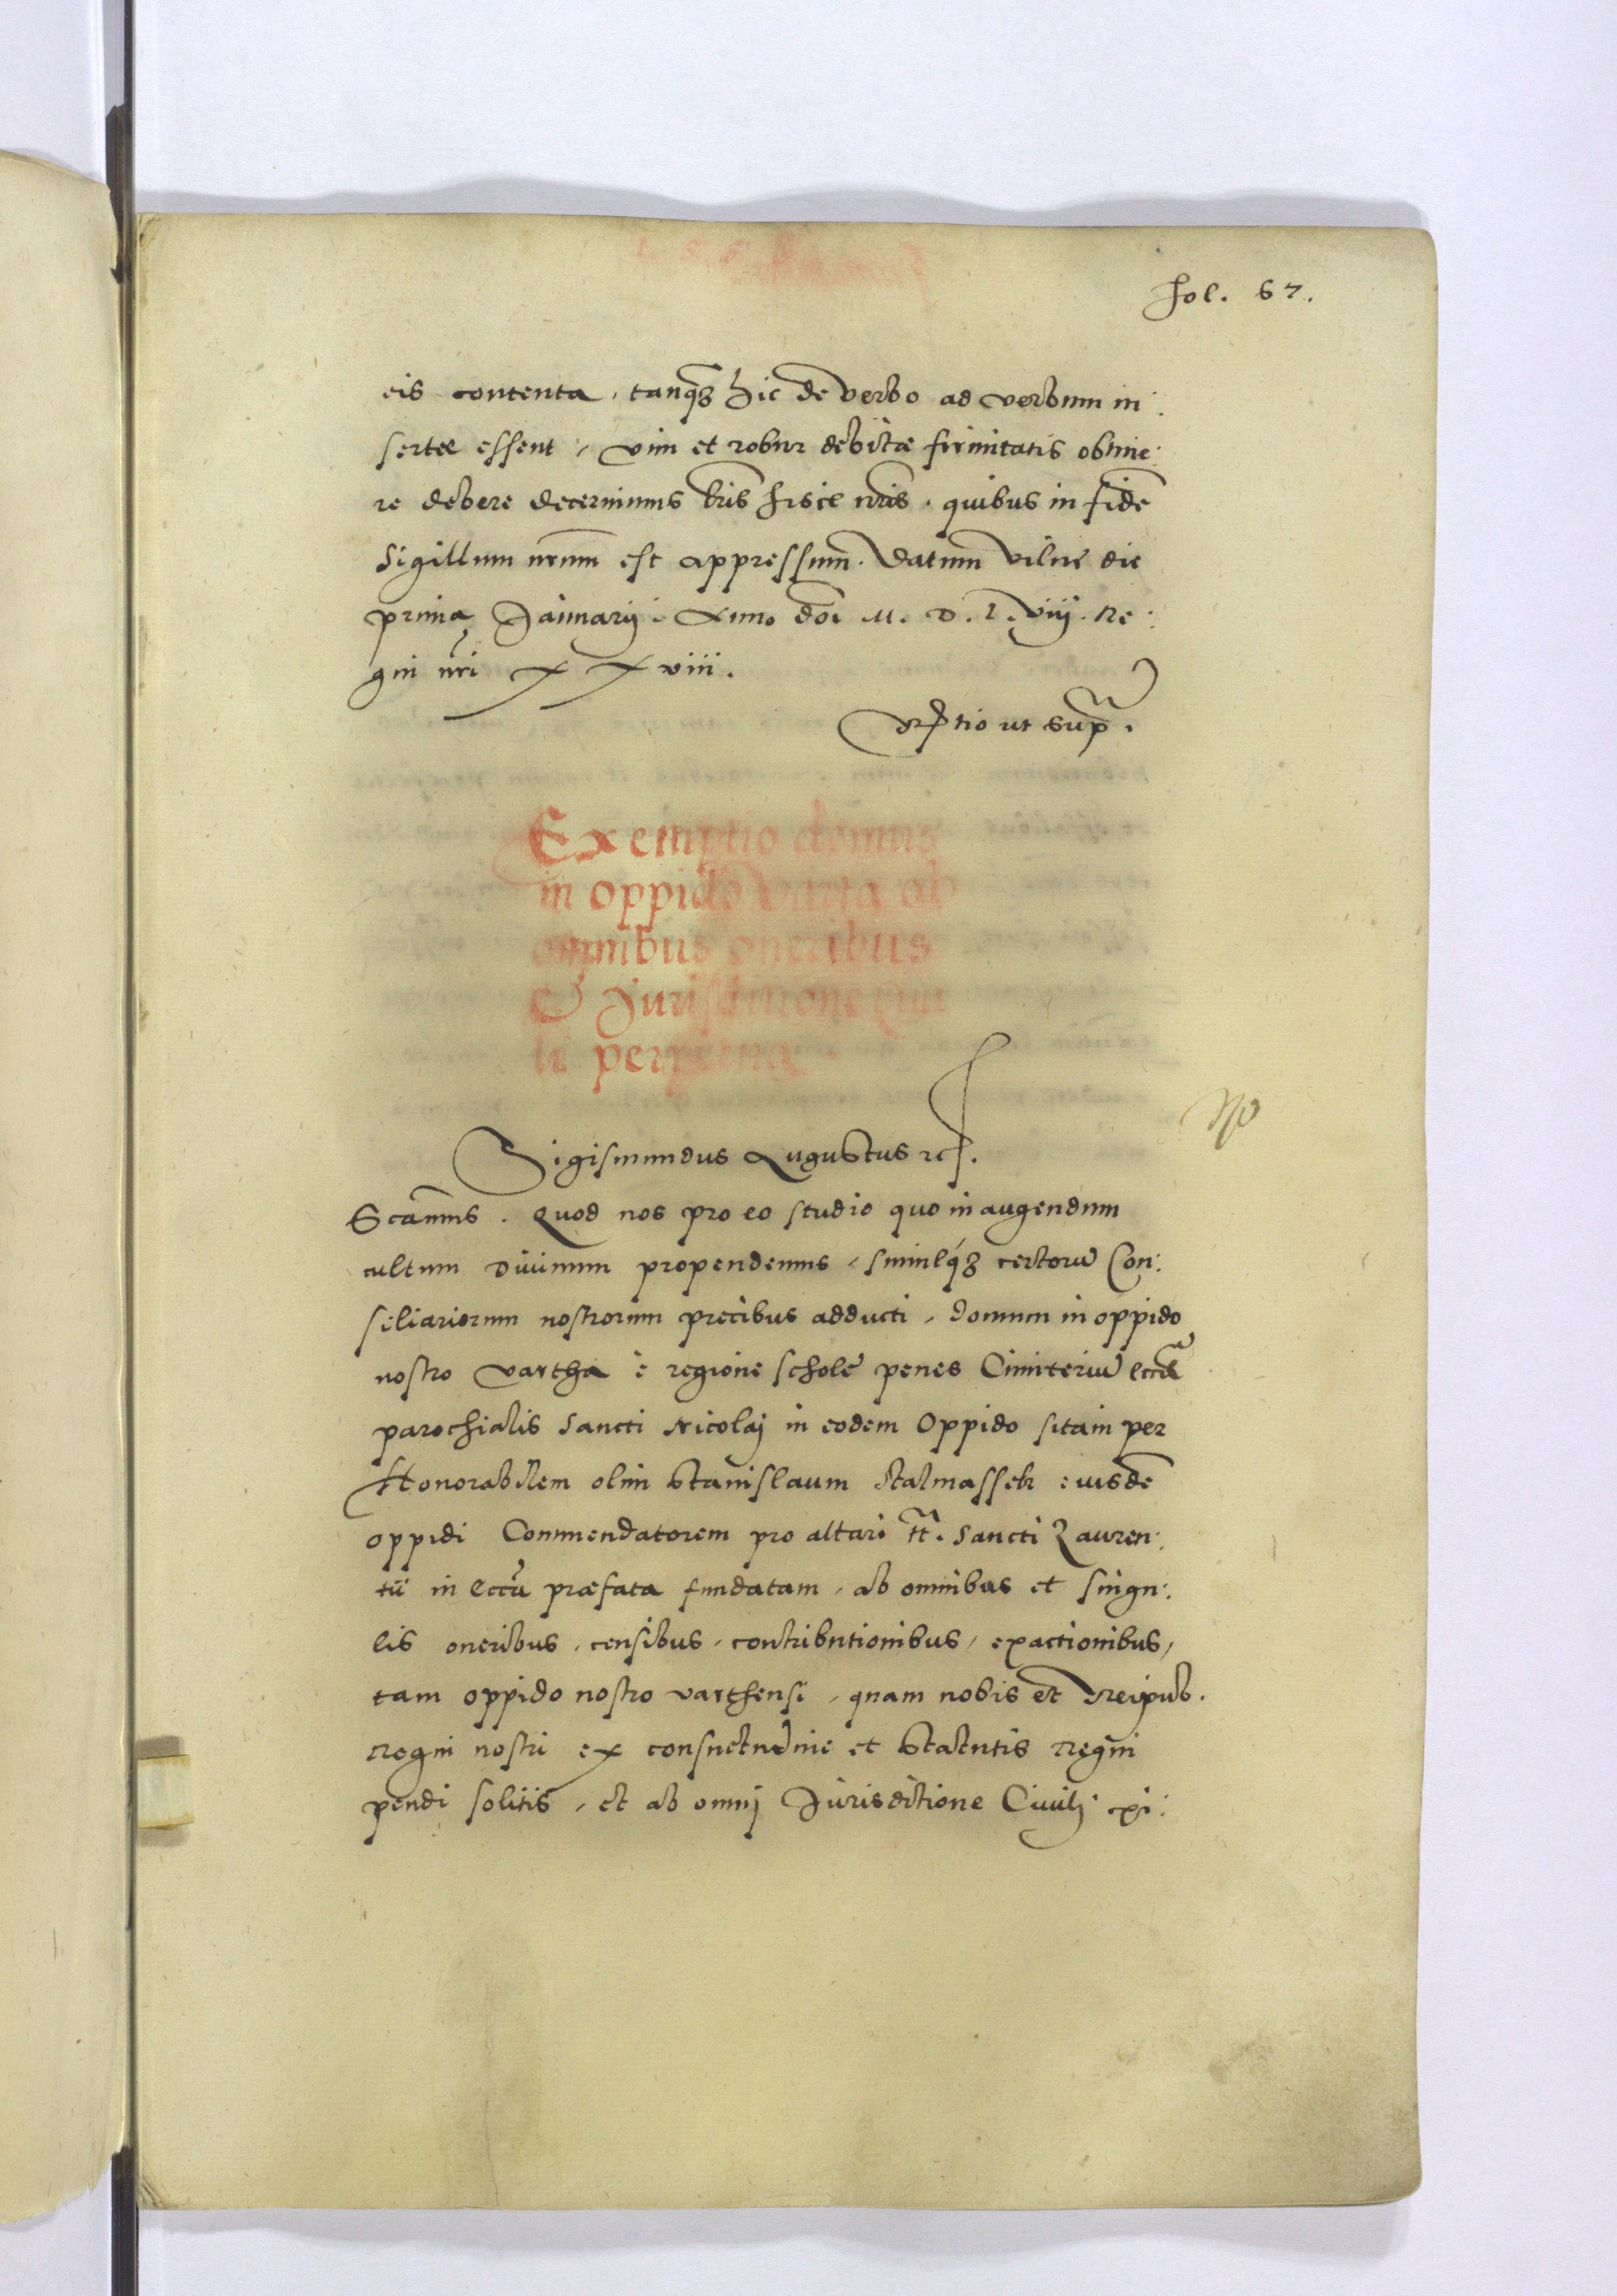 fol. 67.
eis contenta, tanq̃ʒ hic de verbo ad verbum in:
sertę essent, vim et robur debitæ firmitatis obtine:
re debere decernimus l̃ris hisce nr̃is. quibus in fidẽ
sigillum nr̃um est appressum. Datum vilnę die
prima Januarij. Anno dñi M. D. L. viij. Re:
gni nr̃i xxviii.
Rl̃tio ut sup̃.
Exemptio domus
in oppido Varta ab
omnibus oneribus
& Jurisditione Civi
li perpetua
Sigismundus Augustus etc.
Scam̃us. Quod nos pro eo studio quo in augendum
cultum divinum propendemus, simulq́ʒ certorũ Con:
siliariorum nostrorum precibus adducti, domum in oppido
nostro vartha è regione scholę penes Cimiteriũ eccl̃ę
parochialis sancti Nicolaj in eodem Oppido sitam per
Honorabilem olim Stanislaum Stalmassek eiusdẽ
oppidi Commendatorem pro altari tt̃. sancti Lauren:
tii in eccl̃ia præfata fundatam, ab omnibus et singu:
lis oneribus, censibus, contributionibus, exactionibus,
tam oppido nostro varthensi, quam nobis et Reipub.
Regni nostri ex consuetudine et statutis Regni
pendi solitis, et ab omnj Jurisditione Civilj exi: